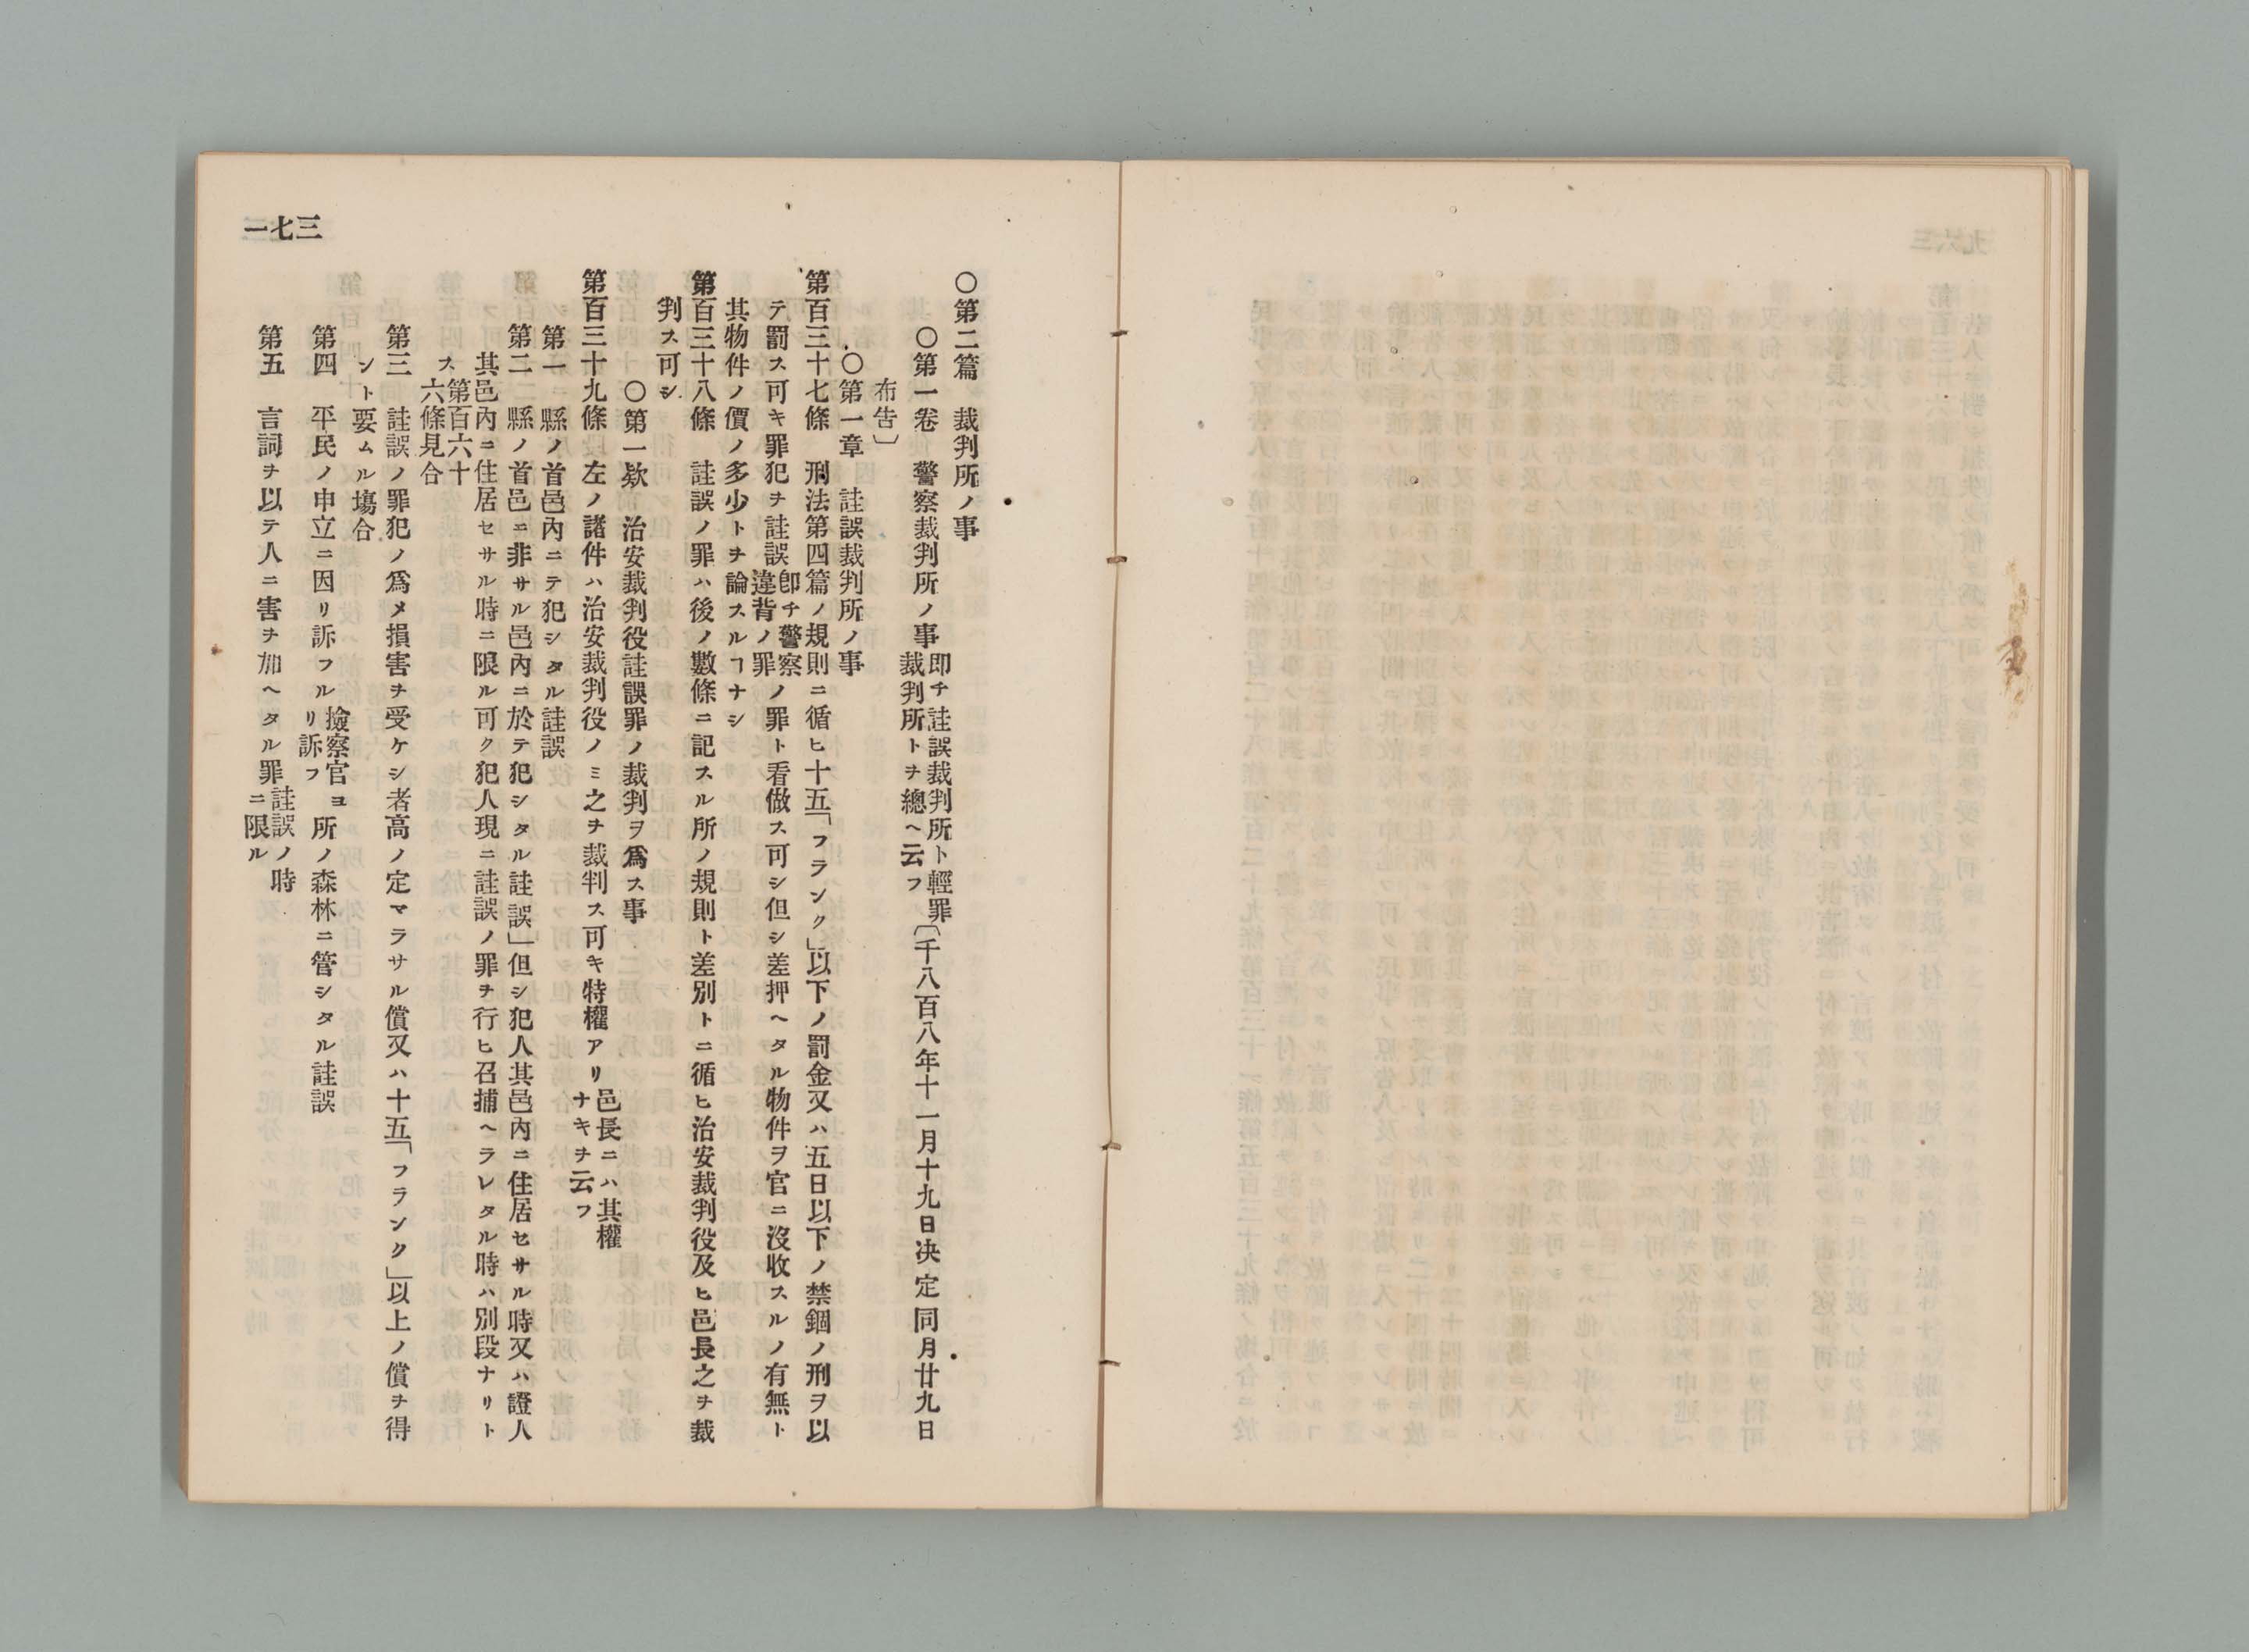 ○第二篇　裁判所ノ事
○第一卷　警察裁判所ノ事 即チ註誤裁判所ト輕罪裁判所トヲ總ヘ云フ 〔千八百八年十一月十九日決定同月廿九日
布告〕
○第一章　註誤裁判所ノ事
第百三十七條　刑法第四篇ノ規則ニ循ヒ十五「フランク」以下ノ罰金又ハ五日以下ノ禁錮ノ刑ヲ以
テ罰ス可キ罪犯ヲ註誤 卽チ警察違背ノ罪 ノ罪ト看做ス可シ但シ差押ヘタル物件ヲ官ニ沒收スルノ有無ト
其物件ノ價ノ多少トヲ論スルヿナシ
第百三十八條　註誤ノ罪ハ後ノ數條ニ記スル所ノ規則ト差別トニ循ヒ治安裁判役及ヒ邑長之ヲ裁
判ス可シ
○第一欵　治安裁判役註誤罪ノ裁判ヲ爲ス事
第百三十九條　左ノ諸件ハ治安裁判役ノミ之ヲ裁判ス可キ特權アリ 邑長ニハ其權ナキヲ云フ
第一　縣ノ首邑內ニテ犯シタル註誤
第二　縣ノ首邑ニ非サル邑內ニ於テ犯シタル註誤」但シ犯人其邑內ニ住居セサル時又ハ證人
其邑內ニ住居セサル時ニ限ル可ク犯人現ニ註誤ノ罪ヲ行ヒ召捕ヘラレタル時ハ別段ナリト
ス 第百六十六條見合
第三　註誤ノ罪犯ノ爲メ損害ヲ受ケシ者高ノ定マラサル償又ハ十五「フランク」以上ノ償ヲ得
ント要ムル塲合
第四　平民ノ申立ニ因リ訴フル 撿察官ヨリ訴フ 所ノ森林ニ管シタル註誤
第五　言詞ヲ以テ人ニ害ヲ加ヘタル罪 註誤ノ時ニ限ル
三七一